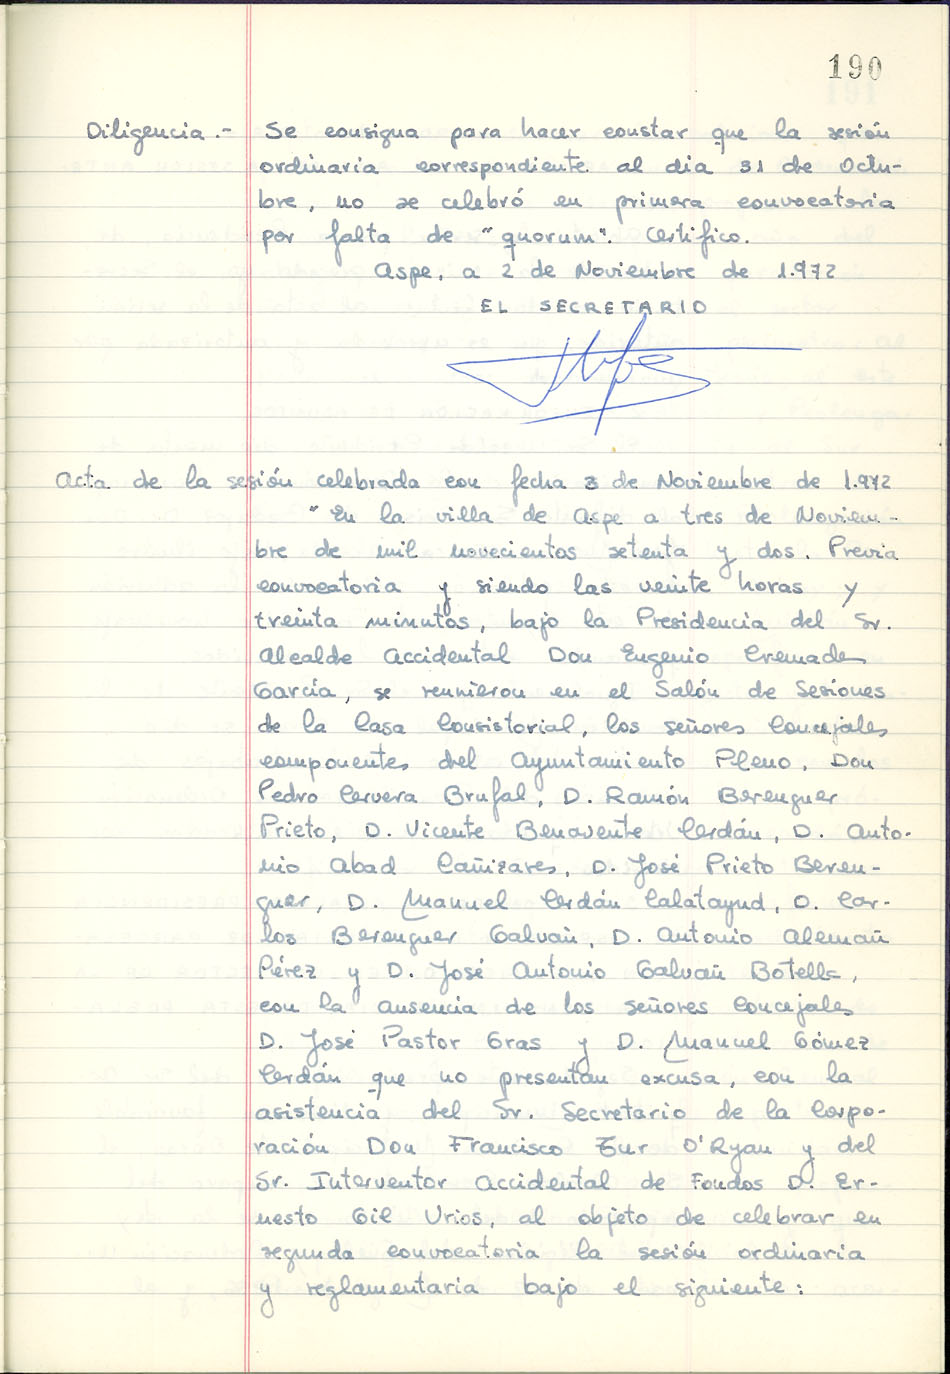 190
Diligencia.- Se consigna para hacer constar que la sesión
ordinaria correspondiente al dia 31 de Octu-
bre, no se celebró en primera convocatoria
por falta de "quorum". Certifico.
Aspe, a 2 de Noviembre de 1.972
EL SECRETARIO
Acta de la sesión celebrada con fecha 3 de Noviembre de 1.972
"En la villa de Aspe a tres de Noviem-
bre de mil novecientos setenta y dos. Previa
convocatoria y siendo las veinte horas y
treinta minutos, bajo la Presidencia del Sr.
Alcalde Accidental Don Eugenio Cremades
García, se reunieron en el Salón de Sesiones
de la Casa Consistorial, los señores Concejales
componentes del Ayuntamiento Pleno, Don
Pedro Cervera Brufal, D. Ramón Berenguer
Prieto, D. Vicente Benavente Cerdán, D. Anto-
nio Abad Cañizares, D. José Prieto Beren-
guer, D. Manuel Cerdán Calatayud, D. Car-
los Berenguer Galvañ, D. Antonio Alemañ
Pérez y D. José Antonio Galvañ Botella,
con la ausencia de los señores Concejales
D. José Pastor Gras y D. Manuel Gómez
Cerdán que no presentan excusa, con la
asistencia del Sr. Secretario de la Corpo-
ración Don Francisco Zur O'Ryan y del
Sr. Interventor Accidental de Fondos D. Er-
nesto Gil Urios, al objeto de celebrar en
segunda convocatoria la sesión ordinaria
y reglamentaria bajo el siguiente: